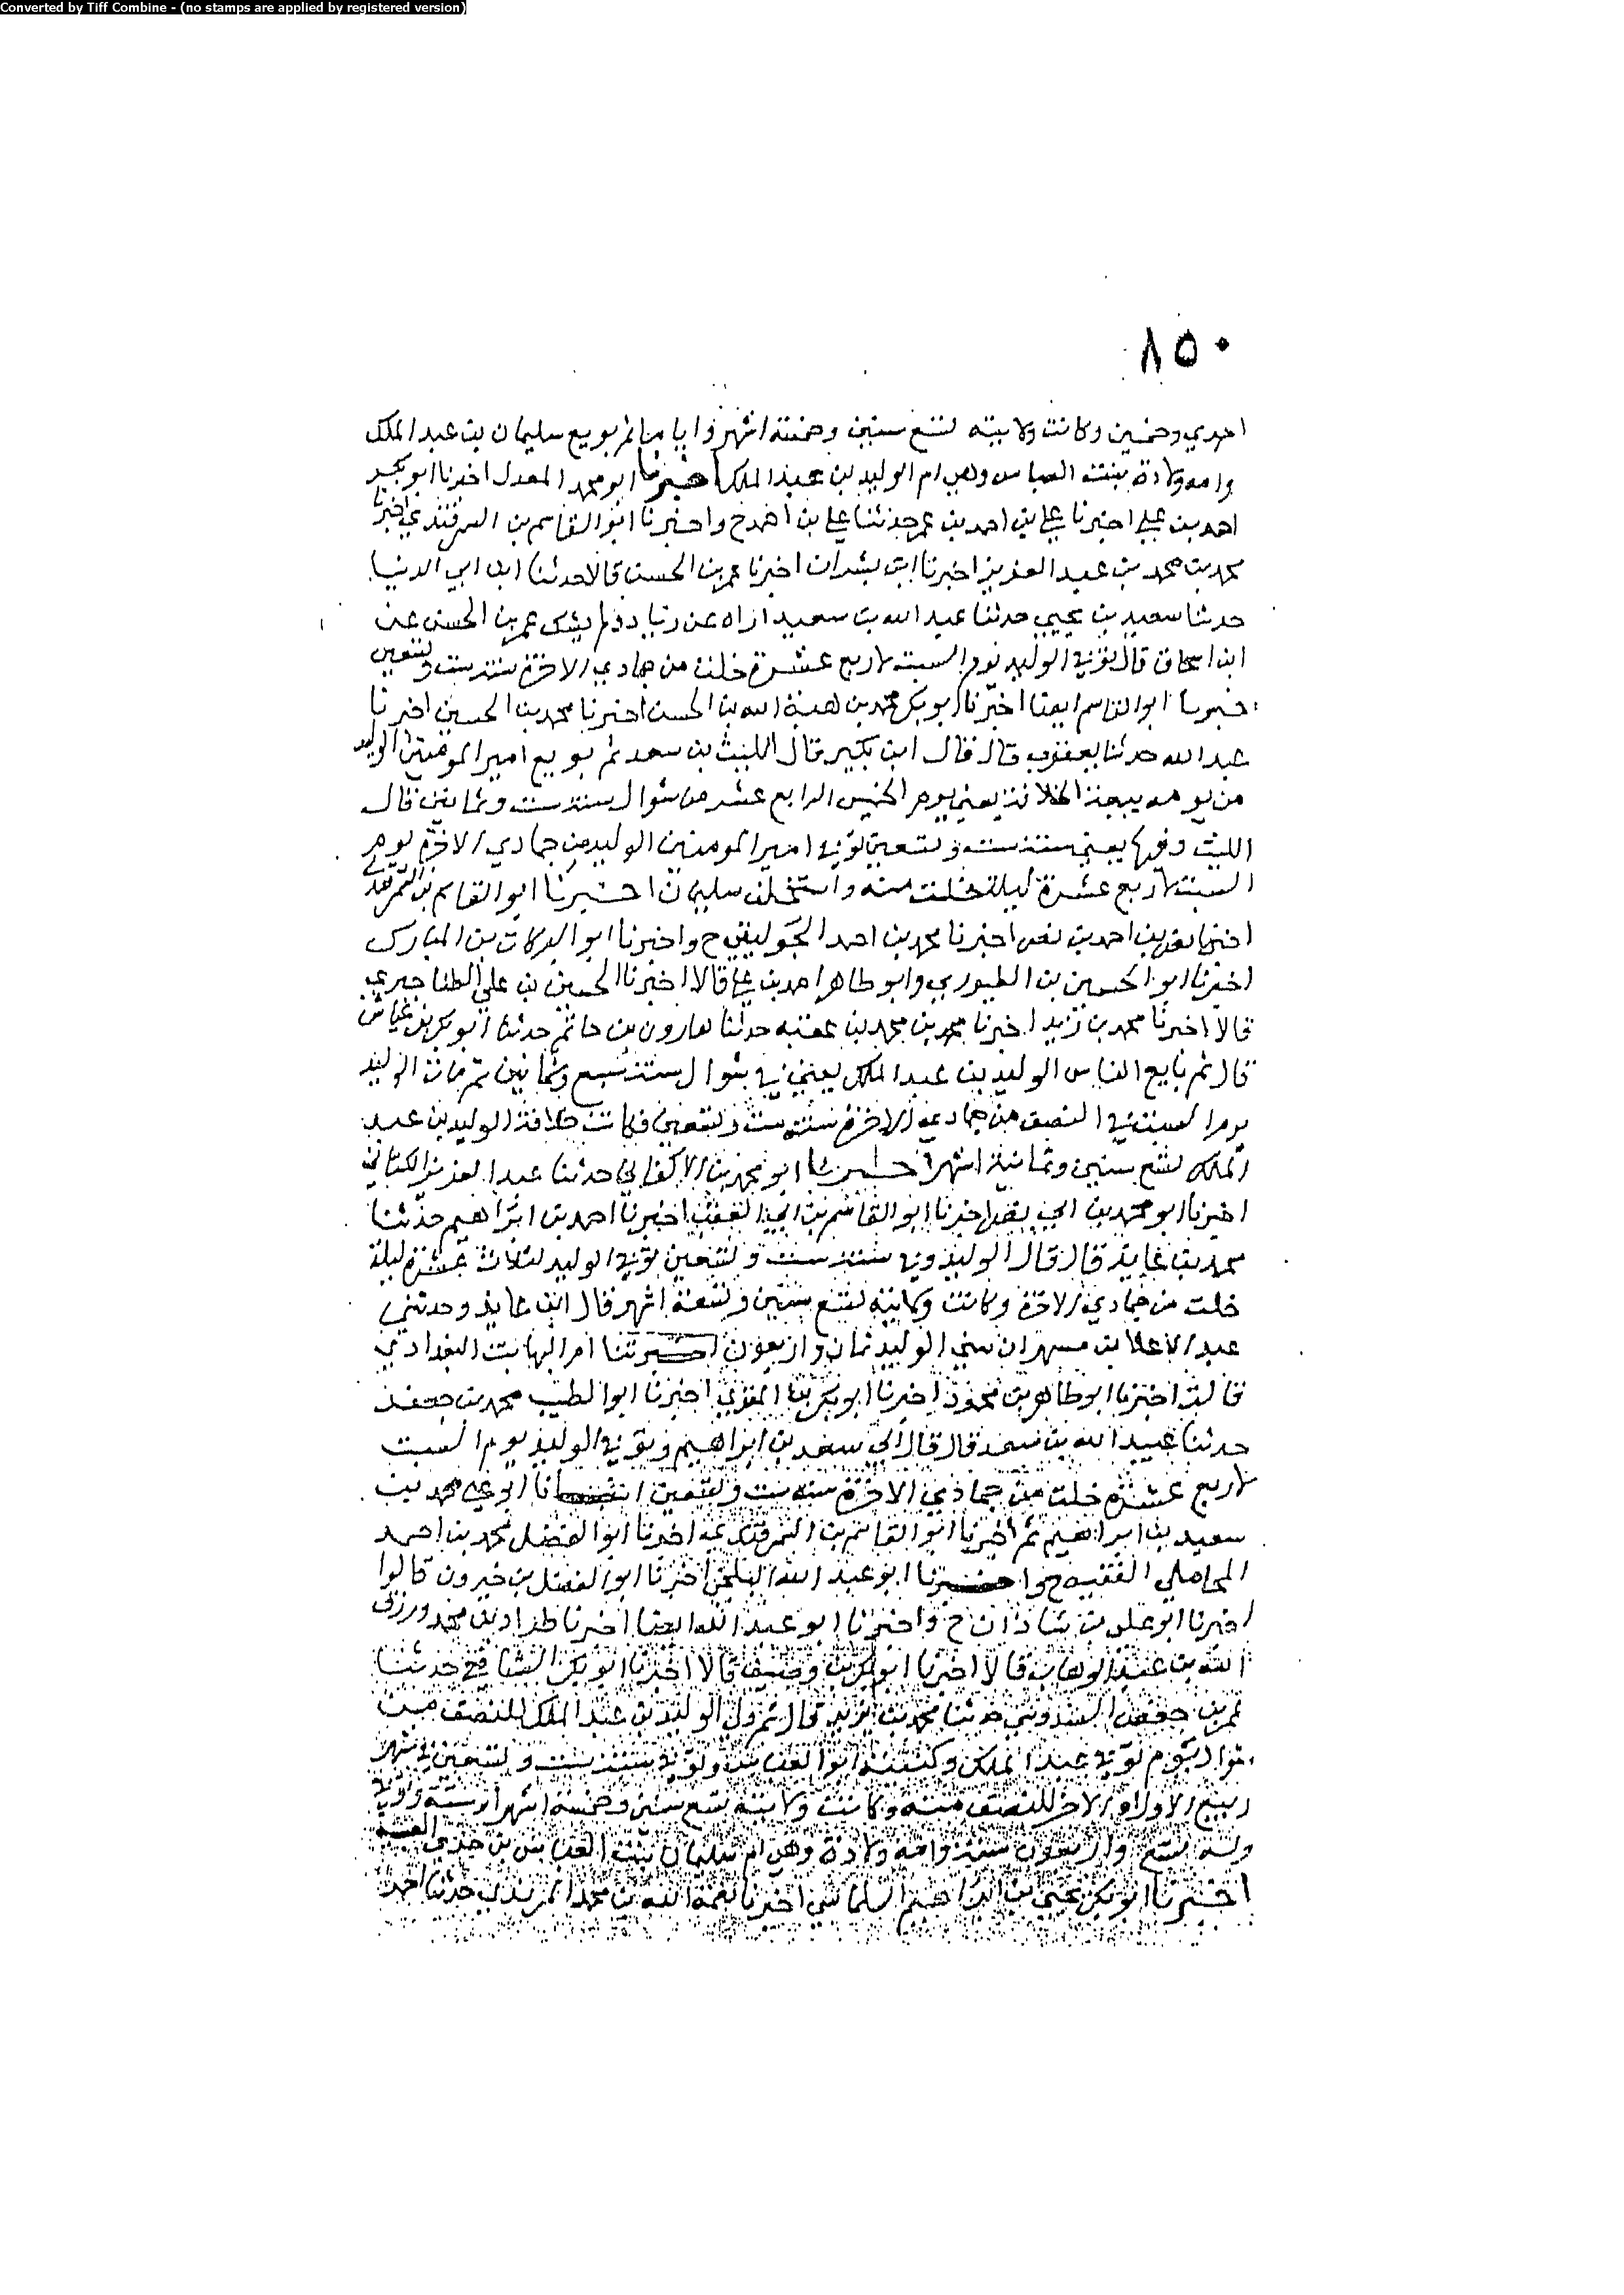 Converted by Tiff Combine - (no stamps are applied by registered version)
٨٥٠
احدي وخمسين وكانت ولايته تسع سنين وخمسة اشهر واياما ثم بويع سليمان بن عبد الملك
وامه ولادة بنت العباس وهي ام الوليد بن عبد الملك اخبرنا ابو محمد المعدل اخبرنا ابو بكر
احمد بن علي اخبرنا علي بن احمد بن عمر حدثنا علي بن احمد ح واخبرنا ابو القاسم بن السمرقندي اخبرنا
محمد بن محمد بن عبد العزيز اخبرنا ابن بشران اخبرنا عمر بن الحسن قالا حدثنا ابن ابي الدنيا
حدثنا سعيد بن يحيي حدثنا عبد الله بن سعيد اراه عن زياد ولم يشك عمر بن الحسن عن
ابن اسحاق قال توفي الوليد يوم السبت لاربع عشرة خلت من جمادي الاخرة سنة ست وتسعين
اخبرنا ابو القاسم ايضا اخبرنا ابو بكر محمد بن هبة الله بن الحسن اخبرنا محمد بن الحسين اخبرنا
عبد الله حدثنا يعقوب قال قال ابن بكير قال الليث بن سعد ثم بويع امير المومنين الوليد
من يومه ببيعة الخلافة يعني يوم الخميس الرابع عشر من شوال سنة ست وثمانين قال
الليث وفيها يعني سنة ست وتسعين توفي امير المومنين الوليد من جمادي الاخرة يوم
السبت لاربع عشرة ليلة خلت منه واستخلف سليمان اخبرنا ابو القاسم بن السمرقندي
اخبرنا نصر بن احمد بن نصر اخبرنا محمد بن احمد الجواليقي ح واخبرنا ابو البركات بن المبارك
اخبرنا ابو الحسين بن الطيوري وابو طاهر احمد بن علي قالا اخبرنا الحسين بن علي الطناجيري
قالا اخبرنا محمد بن زيد اخبرنا محمد بن محمد بن عقبه حدثنا هارون بن حاتم حدثنا ابو بكر بن عياش
قال ثم بايع الناس الوليد بن عبد الملك يعني في شوال سنة سبع وثمانين ثم مات الوليد
يوم السبت في النصف من جمادي الاخرة سنة ست وتسعين فكانت خلافة الوليد بن عبد
الملك تسع سنين وثمانية اشهر اخبرنا ابو محمد بن الاكفاني حدثنا عبد العزيز الكتاني
اخبرنا ابو محمد بن ابي نصر اخبرنا ابو القاسم بن ابي العقب اخبرنا احمد بن ابراهيم حدثنا
محمد بن عايذ قال قال الوليد وفي سنة ست وتسعين توفي الوليد لثلاث عشرة ليلة
خلت من جمادي الاخرة وكانت ولايته تسع سنين وتسعة اشهر قال ابن عايذ وحدثني
عبد الاعلا بن مسهر ان سني الوليد ثمان واربعون اخبرتنا ام البها بنت البغدادي
قالت اخبرنا ابو طاهر بن محمود اخبرنا ابو بكر بن المقري اخبرنا ابو الطيب محمد بن جعفر
حدثنا عبيد الله بن سعد قال قال ابي سعد بن ابراهيم وتوفي الوليد يوم السبت
لاربع عشرة خلت من جمادي الاخرة سنة ست وتسعين انا ابو علي محمد بن
سعيد بن ابراهيم ثم اخبرنا ابو القاسم بن السمرقندي اخبرنا ابو الفضل محمد بن احمد
المحاملي الفقيه ح واخبرنا ابو عبد الله البلخي اخبرنا ابو الفضل بن خيرون قالوا
اخبرنا ابو علي بن شاذان ح واخبرنا ابو عبد الله ايضا اخبرنا طراد بن محمد ورزق
الله بن عبد الوهاب قالا اخبرنا ابو بكر بن وصيف قالا اخبرنا ابو بكر الشافعي حدثنا
عمر بن حفص السدوسي حدثنا محمد بن يزيد قال ثم ولي الوليد بن عبد الملك للنصف من
شوال يوم توفي عبد الملك وكنيته ابو العباس وتوفي سنة ست وتسعين في شهر
ربيع الاول او الاخر للنصف منه وكانت ولايته تسع سنين وخمسة اشهر او ستة وتوفي
وله تسع واربعون سنة وامه ولادة وهي ام سليمان بنت العباس بن جزي العبسية
اخبرنا ابو بكر يحيي بن ابراهيم السلماسي اخبرنا نعمة الله بن محمد المرندي حدثنا احمد